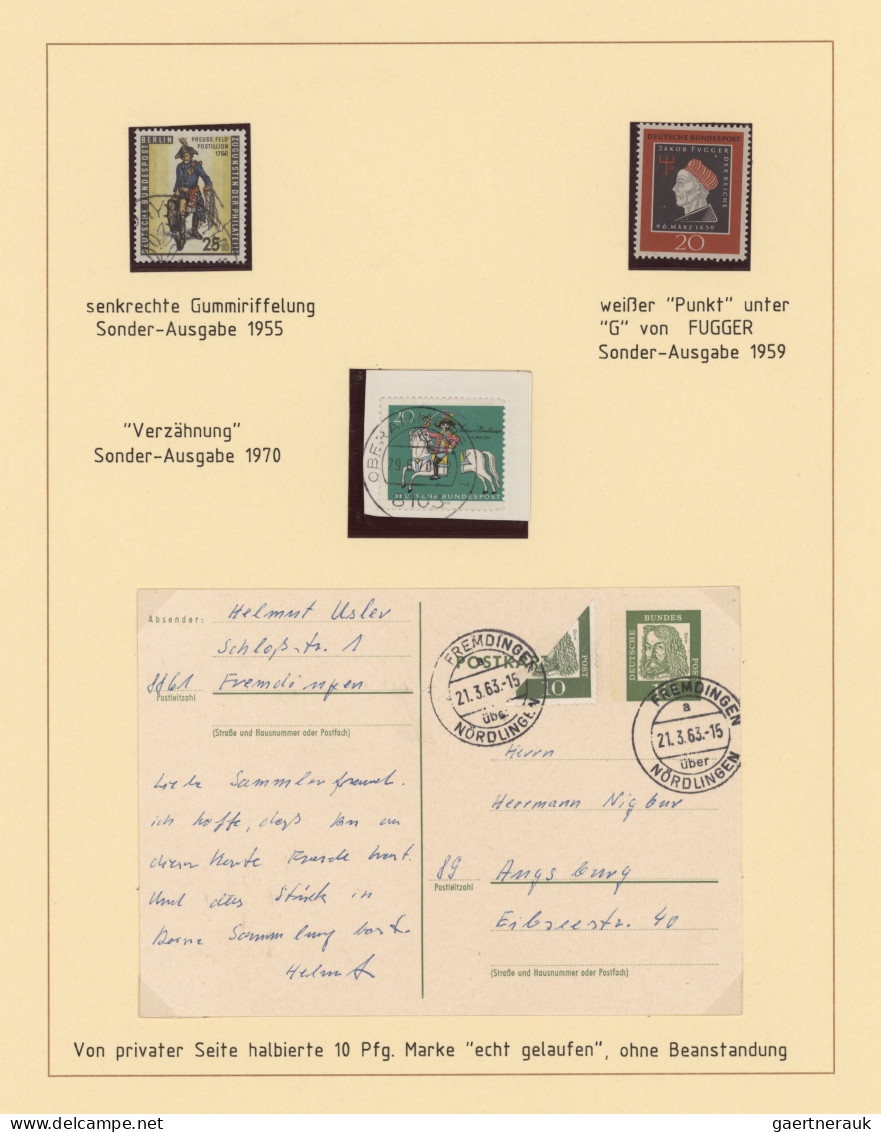 BERLIN
PREUSS. FELD-
POSTILLION
1760
DEUTSCHE BUNDESPOST
ZUGUNSTEN DER PHILATELIE
25
DEUTSCHE BUNDESPOST
JAKOB FVGGER
DER REICHE
96. MÄRZ 1459
20
senkrechte Gummiriffelung
Sonder-Ausgabe 1955
weißer "Punkt" unter
"G" von FUGGER
Sonder-Ausgabe 1959
"Verzähnung"
Sonder-Ausgabe 1970
20
OBER
DEUTSCHE BUNDESPOST
8103
Absender: Helmut Usler
Schloßstr. 1
8861 Fremdingen
Postleitzahl
(Straße und Hausnummer oder Postfach)
POSTKAR
10
POST
FREMDINGEN
a
21.3.63.-15
über
NÖRDLINGEN
DEUTSCHE
BUNDES
POST
FREMDINGEN
a
21.3.63.-15
über
NÖRDLINGEN
Liebe Sammlerfreund.
ich hoffe, daß Du an
dieser Karte Freude hast.
Und das Stück in
Deine Sammlung paßt.
Helmut
Herrn
Herrmann
89 Augsburg
Postleitzahl
Eibseestr. 40
(Straße und Hausnummer oder Postfach)
Von privater Seite halbierte 10 Pfg. Marke "echt gelaufen", ohne Beanstandung
delcampe.net
gaertnerauk